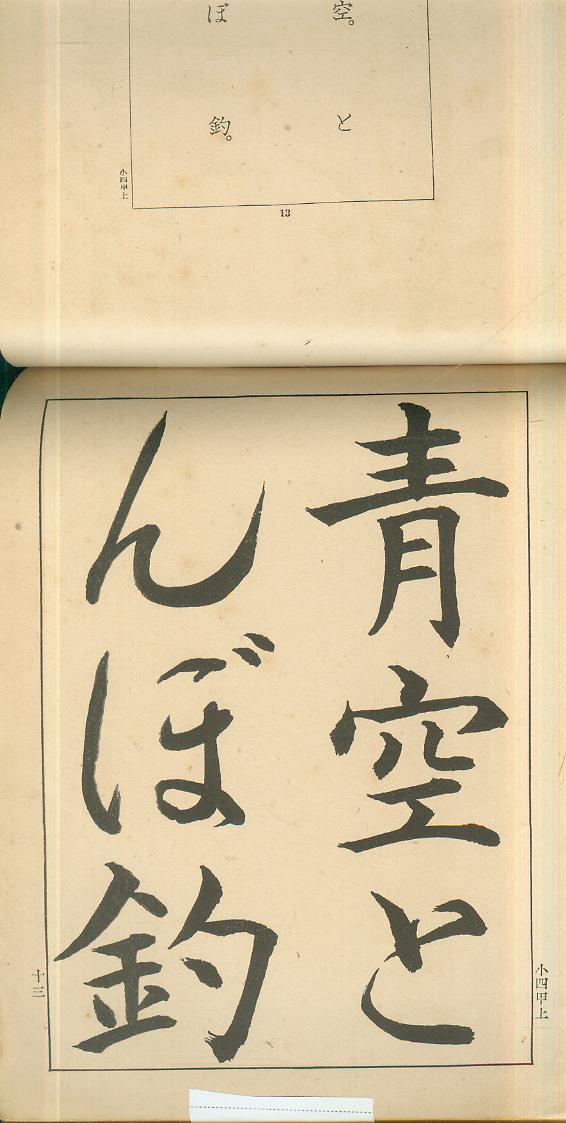 空。と
ぼ釣。
小四甲上
13
青空と
んぼ釣
小四甲上
十三